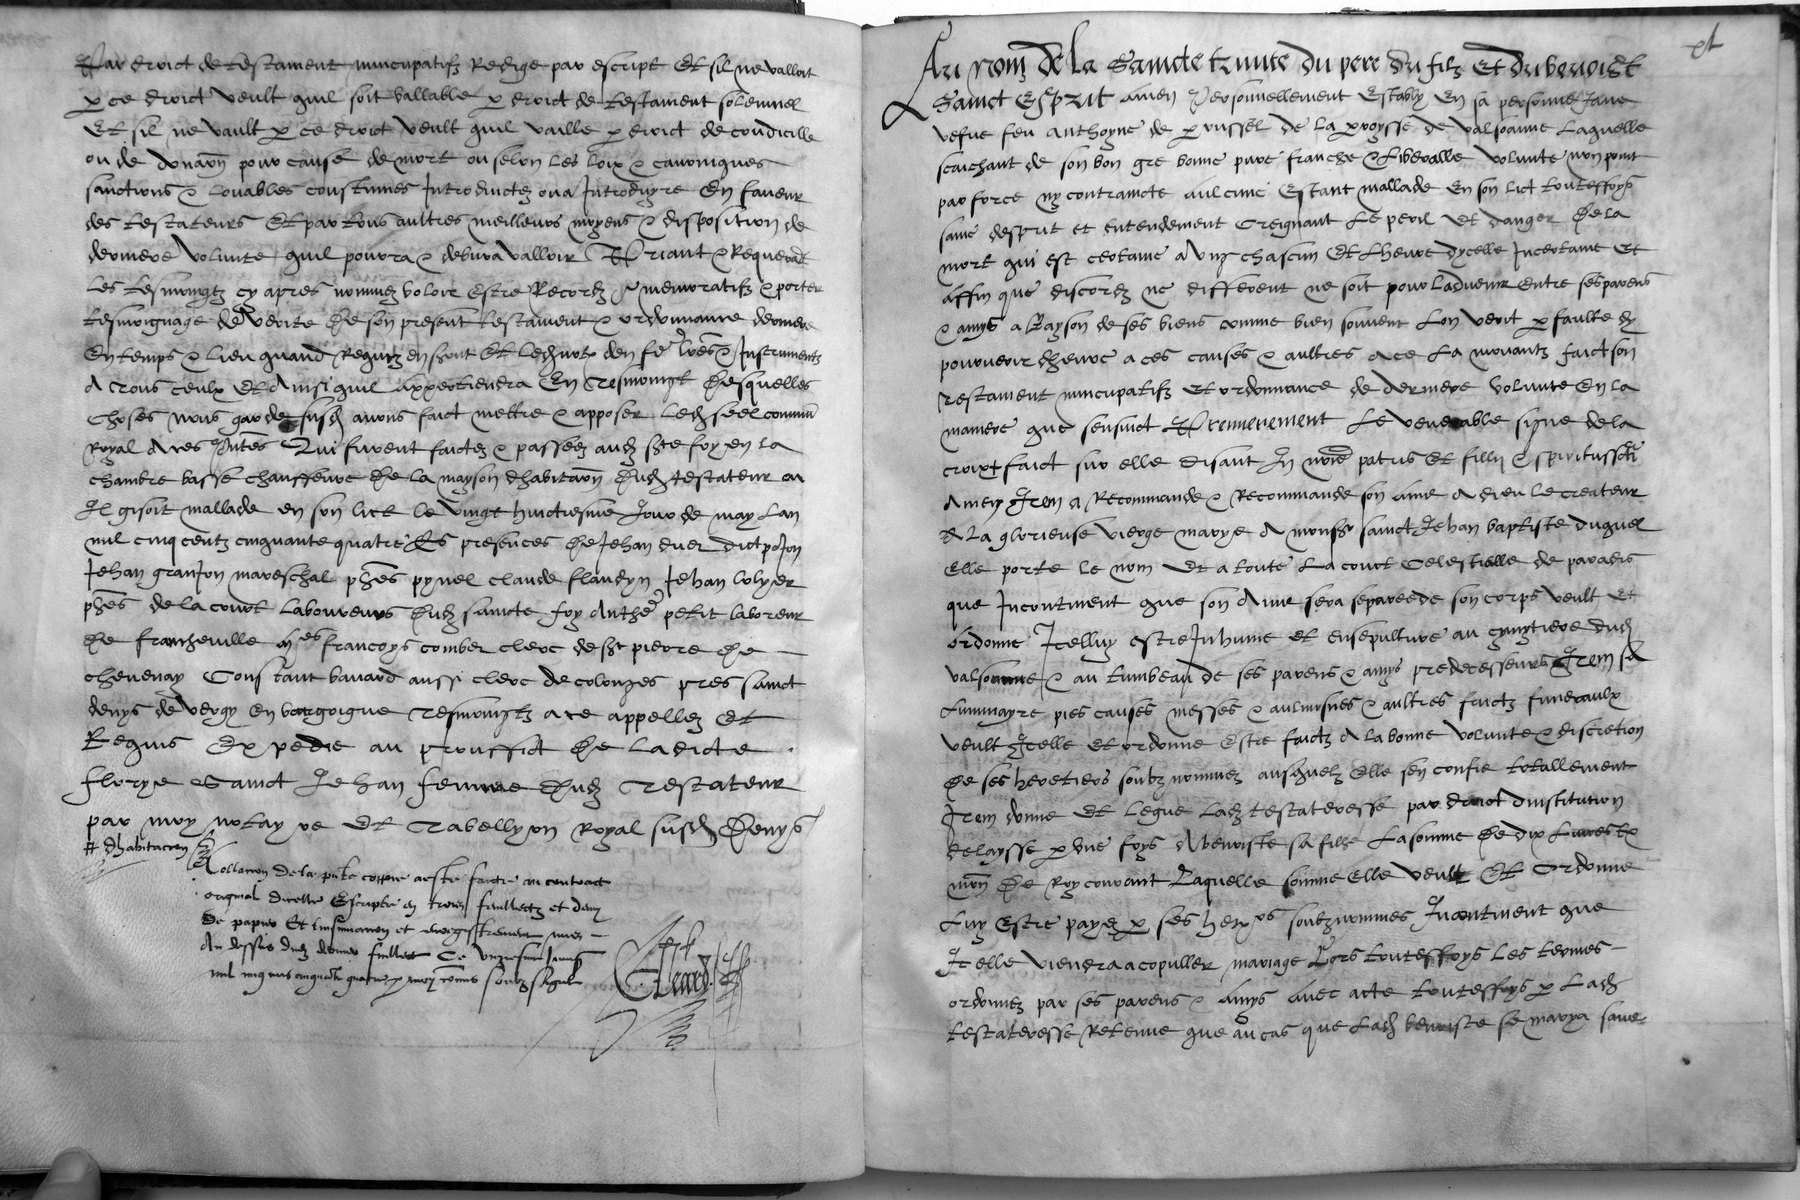 Par droict de testament nuncupatifz Redige par escript Et sil ne valloit
p ce droict veult quil soit vallable p droict de testament solennel
Et sil ne vault p ce droict veult quil vaille p droict de condicille
ou de donaon pour cause de mort ou selon les loix & canoniques
sanctions & louables coustumes Introductez ou a Introduyre En faveur
des testateurs Et par tous aultres meilleurs moyens & disposition de
derniere volunte quil pourra & debvra valloir Priant & Requerat
Les tesmoingtz cy apres nommez voloir Estre Recordz & memoratifz & porter
tesmoignage de verite De son present testament & ordonnance derniere
En temps & lieu quand Requitz en seront Et led notr den fe lres & Instrumentz
A tous ceulx Et Ainsi quil Appertiendra En tesmoingt Desquelles
choses nous garde susd avons faict mettre & apposer led seel commun
Royal A ces pntes Qui furent faictez & passeez aud ste foy en la
chambre basse chauffeure De la mayson dhabitaon Dud testateur ou
Il gisoit mallade en son lict le vingt huictiesme Jour de may Lan
mil cinq centz cinquante quatre Es presences De Jehan duer dict poJon
Jehan granJon mareschal phes pynel claude flandyn Jehan lolyer
phes de la court Laboureurs Dud saincte foy Anthe petit laboreur
De francheville mes francoys comber clerc de st pierre De
chevenay Constant bavard aussi clerc de colonges pres sainct
denys de vergy En bourgoigne tesmoingtz a ce appellez Et
Requis Expedie au prouffict De Ladicte
florye Sainct Jehan femme Dud Testateur
par moy notayre Et Tabellyon Royal susd Denys
# dhabitacion
Collation de la pnte coppie a este faicte au contract
original dicelle Escripte en trois feulhetz et demy
De papier Et linsinuation et enregistrement mises
Au dessus dud dernier feulhet Ce unziesme Jung
mil cinq cens cinquante quatre p moy comis soubz signe
Au nom de la Saincte trinite du pere du filz Et du benoist
Sainct Esprit Amen Personnellement Estably En sa personne Jane
vefve feu Anthoyne de prussel de la proysse de valsonne Laquelle
scaichant de son bon gre bonne pure franche & Liberalle volunte non point
par force ny contraincte Aulcune Estant mallade En son lict toutesfoys
saine desprit et entendement Creignant Le peril Et danger De la
mort qui est certaine A ung chascun Et Lheure dycelle Incertaine Et
Affin que discordz ne different ne soit pour Ladvenir Entre ses parens
& amys a Rayson de ses biens comme bien souvent Lon veoit p faulte dy
pourveoir dheure a ces causes & aultres a ce La mouantz faict son
testament nuncupatifz Et ordonnance de derniere volunte En la
maniere que sensuict Premierement Le venerable signe de la
croix + faict sur elle disant In noie patris Et fillii & spiritussti
Amen Item a Recommande & Recommande son Ame A dieu le createur
A La glorieuse vierge marye A monsr sainct Jehan baptiste duquel
Elle porte le nom Et a toute La court Celestielle de paradis
que Incontinent que son Ame sera separee de son corps veult Et
ordonne Icelluy estre Inhume et ensepulture au cymytiere dud
valsonne & au tumbeau de ses parens & amys predecesseurs Item sa
Luminayre pies causes messes & aulmosnes & aultres fraictz funeraulx
veult Icelle Et ordonne Estre faictz A la bonne volunte & discretion
De ses heretiers soubz nommez ausquelz Elle sen confie totallement
Item donne Et legue Lad testateresse par droict dinstitution
delaysse p une foys A benoiste sa fille La somme De dix Livres tz
mon De Roy courant Laquelle somme Elle veult Et Ordonne
Luy Estre payez p ses hers soubz nommes Incontinent que
Icelle viendra a copuller mariage Lors toutesfoys les termes
ordonnez par ses parens & Amys Avec acte toutesfoys p Lad
testateresse Retenue que au cas que Lad benoiste se marya sans